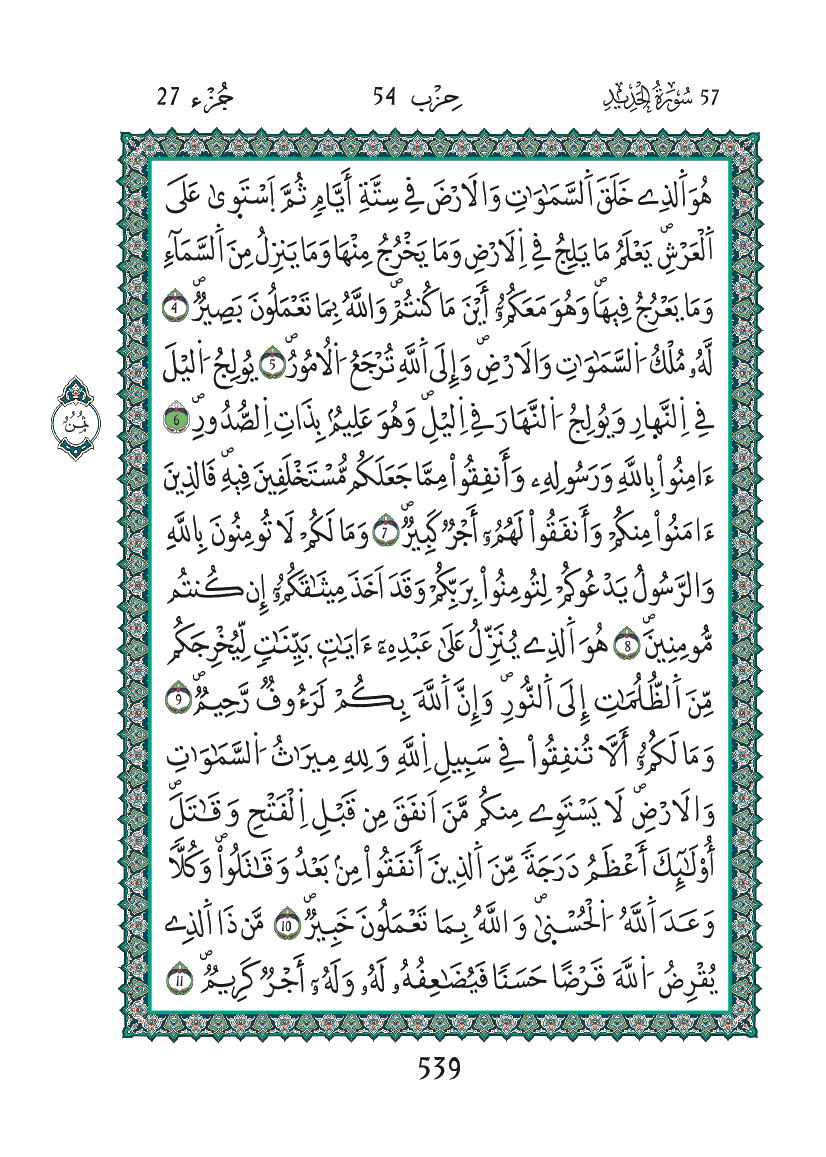 57 سُورَةُ الْحَدِيدِ حِزْب 54 جُزْء 27
هُوَ اَ۬لذِے خَلَقَ اَ۬لسَّمَٰوَٰتِ وَالَارْضَ فِے سِتَّةِ أَيَّامٖ ثُمَّ اَ۪سْتَو۪يٰ عَلَي
اَ۬لْعَرْشِۖ يَعْلَمُ مَا يَلِجُ فِے اِ۬لَارْضِ وَمَا يَخْرُجُ مِنْهَا وَمَا يَنزِلُ مِنَ اَ۬لسَّمَآءِ
وَمَا يَعْرُجُ فِيهَاۖ وَهُوَ مَعَكُمُۥٓ أَيْنَ مَا كُنتُمْۖ وَاللَّهُ بِمَا تَعْمَلُونَ بَصِيرٞۖ 4
لَّهُۥ مُلْكُ اُ۬لسَّمَٰوَٰتِ وَالَارْضِۖ وَإِلَي اَ۬للَّهِ تُرْجَعُ اُ۬لُامُورُۖ 5 يُولِجُ اُ۬ليْلَ
فِے اِ۬لنَّه۪ارِ وَيُولِجُ اُ۬لنَّهَارَ فِے اِ۬ليْلِۖ وَهُوَ عَلِيمُۢ بِذَاتِ اِ۬لصُّدُورِۖ 6
ثُمُنُ
ءَامِنُواْ بِاللَّهِ وَرَسُولِهِۦ وَأَنفِقُواْ مِمَّا جَعَلَكُم مُّسْتَخْلَفِينَ فِيهِۖ فَالذِينَ
ءَامَنُواْ مِنكُمْ وَأَنفَقُواْ لَهُمُۥٓ أَجْرٞ كَبِيرٞۖ 7 وَمَا لَكُمْ لَا تُومِنُونَ بِاللَّهِ
وَالرَّسُولُ يَدْعُوكُمْ لِتُومِنُواْ بِرَبِّكُمْ وَقَدَ اَخَذَ مِيثَٰقَكُمُۥٓ إِن كُنتُم
مُّومِنِينَۖ 8 هُوَ اَ۬لذِے يُنَزِّلُ عَلَيٰ عَبْدِهِۦٓ ءَايَٰتِۢ بَيِّنَٰتٖ لِّيُخْرِجَكُم
مِّنَ اَ۬لظُّلُمَٰتِ إِلَي اَ۬لنُّورِۖ وَإِنَّ اَ۬للَّهَ بِكُمْ لَرَءُوفٞ رَّحِيمٞۖ 9
وَمَا لَكُمُۥٓ أَلَّا تُنفِقُواْ فِے سَبِيلِ اِ۬للَّهِ وَلِلهِ مِيرَٰثُ اُ۬لسَّمَٰوَٰتِ
وَالَارْضِۖ لَا يَسْتَوِے مِنكُم مَّنَ اَنفَقَ مِن قَبْلِ اِ۬لْفَتْحِ وَقَٰتَلَۖ
أُوْلَٰٓئِكَ أَعْظَمُ دَرَجَةٗ مِّنَ اَ۬لذِينَ أَنفَقُواْ مِنۢ بَعْدُ وَقَٰتَلُواْۖ وَكُلّاٗ
وَعَدَ اَ۬للَّهُ اُ۬لْحُسْن۪يٰۖ وَاللَّهُ بِمَا تَعْمَلُونَ خَبِيرٞۖ 10 مَّن ذَا اَ۬لذِے
يُقْرِضُ اُ۬للَّهَ قَرْضًا حَسَنٗا فَيُضَٰعِفُهُۥ لَهُۥ وَلَهُۥٓ أَجْرٞ كَرِيمٞۖ 11
539